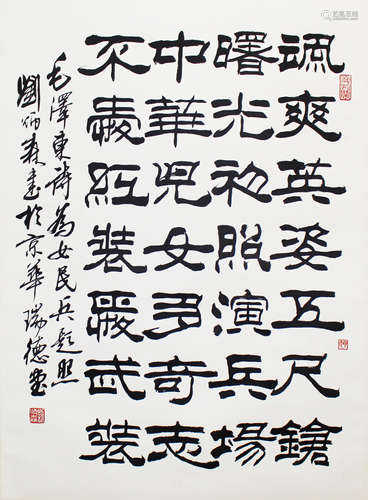 颯爽英姿五尺鎗
曙光初照演兵場
中華兒女多奇志
不愛紅裝愛武裝
毛澤東詩為女民兵題照
劉炳森書於京華瑞德堂